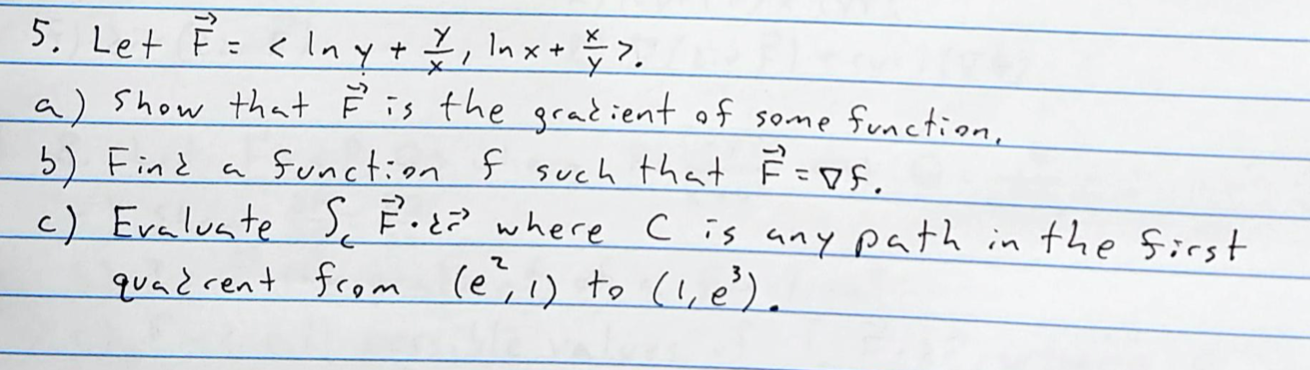 5. Let F⃗ = < ln y + y/x, ln x + x/y >.
a) Show that F⃗ is the gradient of some function.
b) Find a function f such that F⃗ = ∇f.
c) Evaluate ∫_C F⃗ · dr⃗ where C is any path in the first
quadrent from (e², 1) to (1, e³).